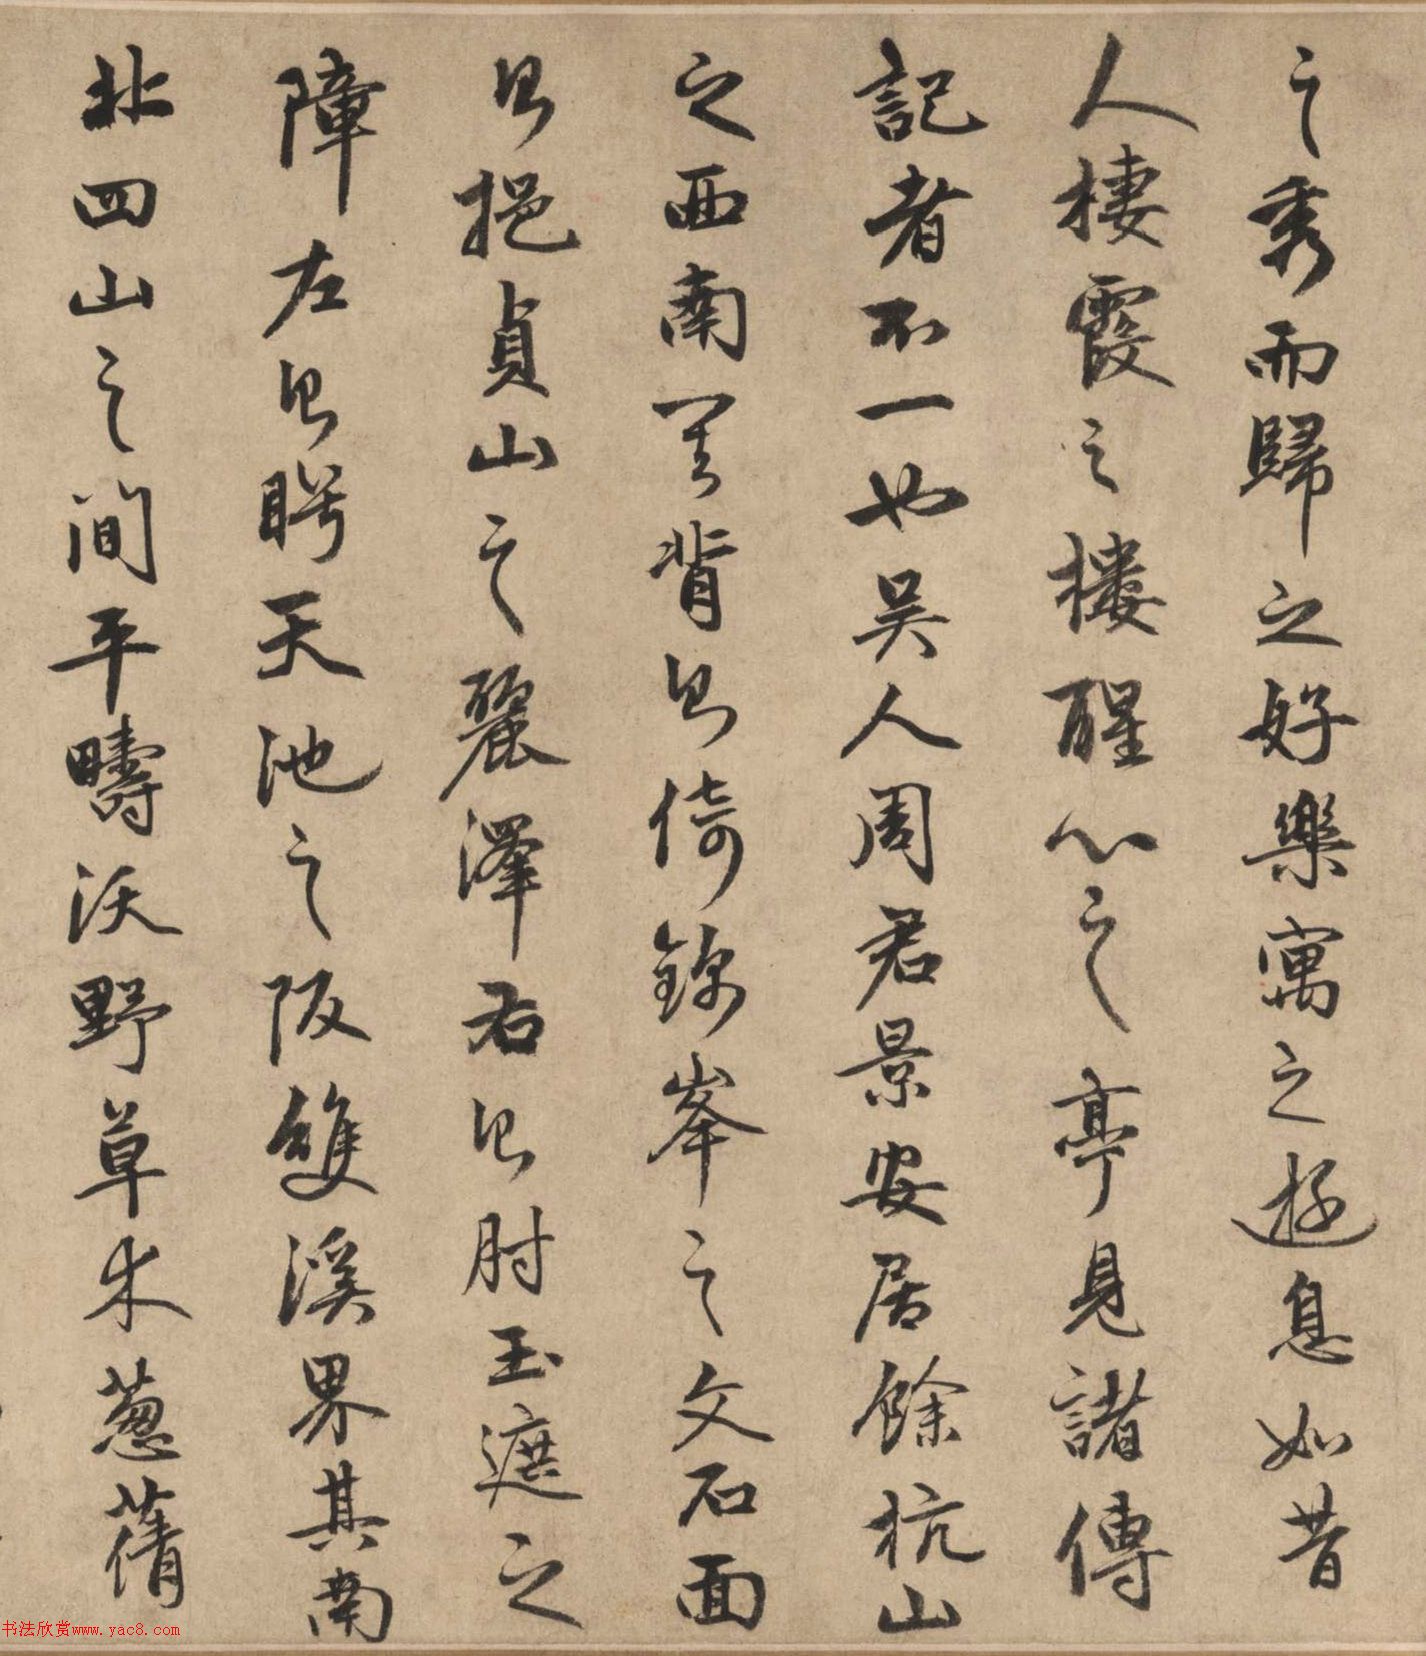 之秀而歸之好樂寓之遊息如昔
人棲霞之樓醒心之亭見諸傳
記者不一也吴人周君景安居餘杭山
之西南背則倚錦峯之文石面
則挹貞山之麗澤右則肘玉遮之
障左則盻天池之阪雙溪界其南
北四山之間平疇沃野草木葱蒨
书法欣赏www.yac8.com